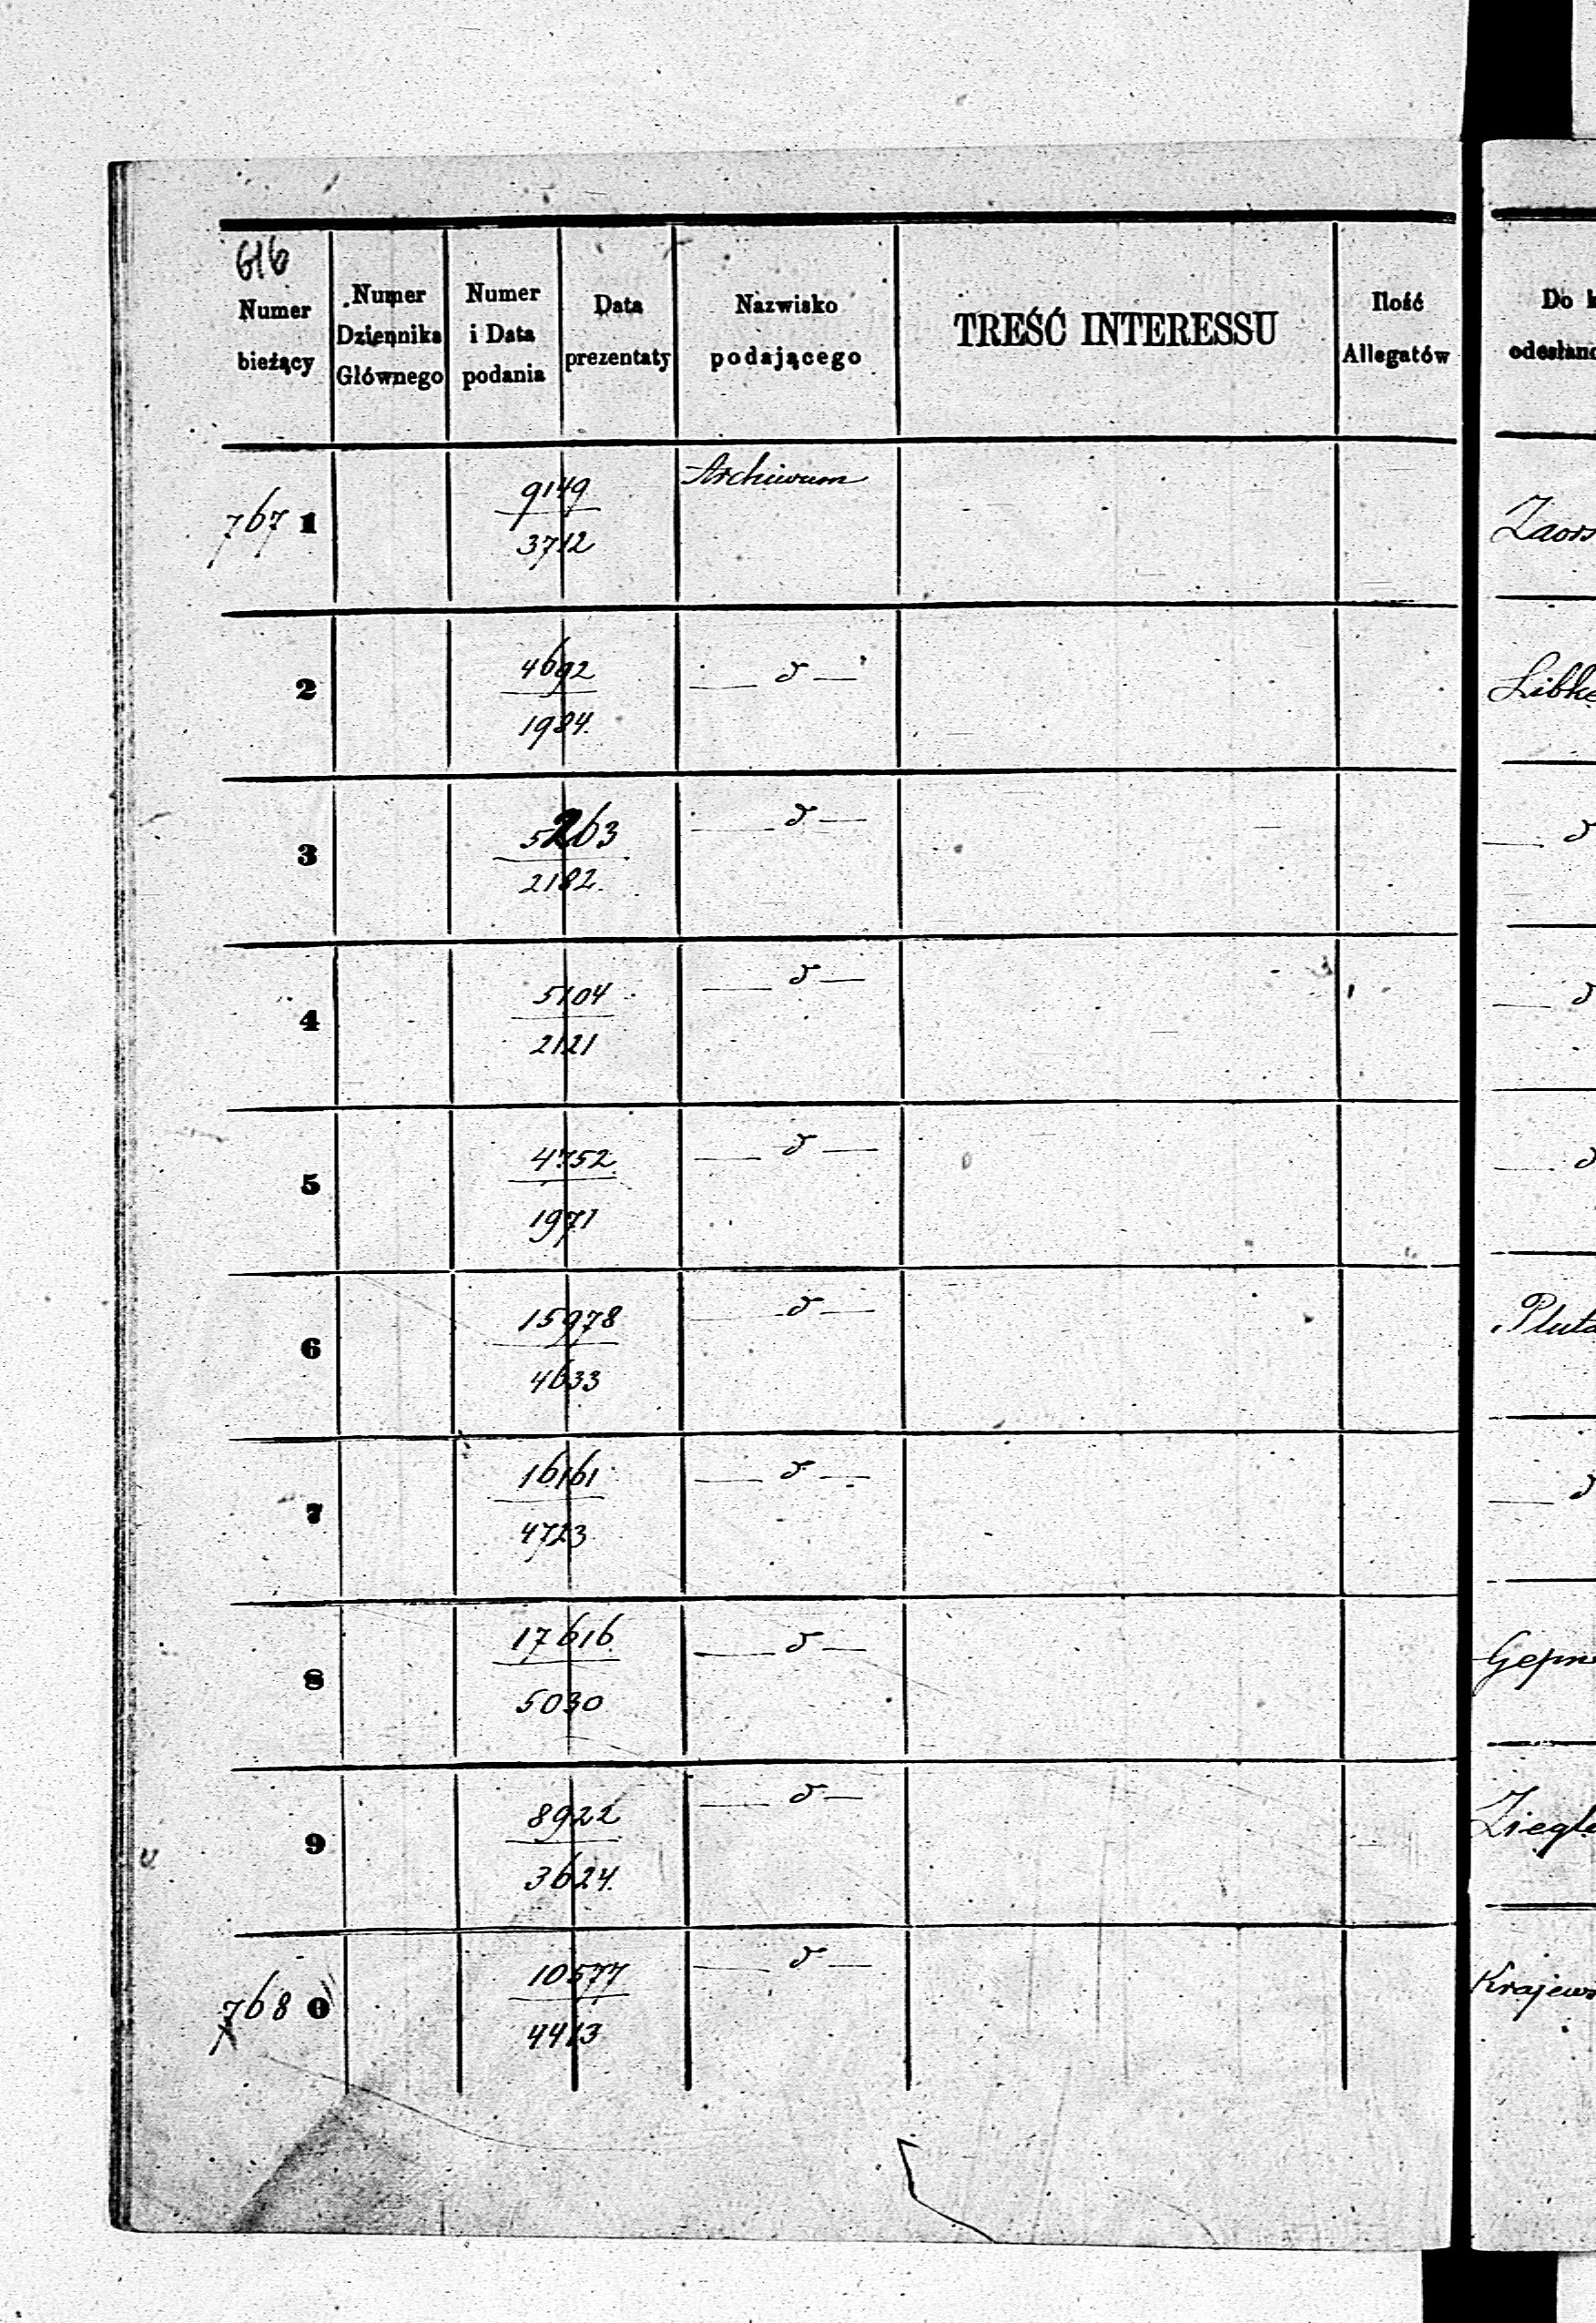 616
Numer bieżący
Numer Dziennika Głównego
Numer i Data podania
Data prezentaty
Nazwisko podającego
TREŚĆ INTERESSU
Ilość Allegatów
Do
odesłano
767 1
9149
3712
Archiwum
2
4692
1984.
— d —
3
5263
2182.
— d —
— d
4
5104
2121
— d —
— d
5
4752.
1971
— d —
— d
6
15978
4633
— d —
7
16161
4723
— d —
— d
8
17616
5030
— d —
9
8922
3624.
— d —
768 0
10577
4413
— d —